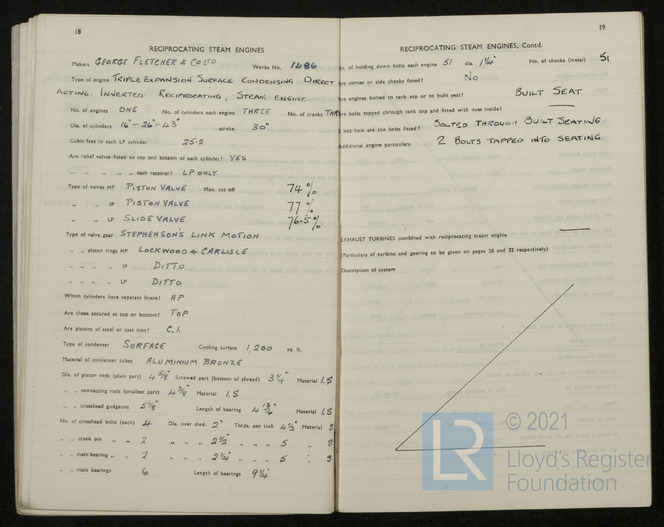 18
RECIPROCATING STEAM ENGINES
Makers GEORGE FLETCHER & CO LTD Works No. 1486
Type of engine TRIPLE EXPANSION SURFACE CONDENSING DIRECT
ACTING INVERTED RECIPROCATING, STEAM ENGINE
No. of engines ONE No. of cylinders each engine THREE No. of cranks
Dia. of cylinders 16" - 26" - 43" stroke 30"
Cubic feet in each LP cylinder 25.2
Are relief valves fitted to top and bottom of each cylinder? YES
" " " " " each receiver? LP ONLY
Type of valves HP PISTON VALVE Max. cut off 74%
" " IP PISTON VALVE 77%
" " LP SLIDE VALVE 76.5%
Type of valve gear STEPHENSON'S LINK MOTION
" " piston rings HP LOCKWOOD & CARLISLE
" " " " IP DITTO
" " " " LP DITTO
Which cylinders have separate liners? HP
Are these secured at top or bottom? TOP
Are pistons of steel or cast iron? C.I.
Type of condenser SURFACE Cooling surface 1,200 sq. ft.
Material of condenser tubes ALUMINIUM BRONZE
Dia. of piston rods (plain part) 4 5/8" Screwed part (bottom of thread) 3 1/4" Material I.S
" " connecting rods (smallest part) 4 3/8" Material I.S
" " crosshead gudgeons 5 1/8" Length of bearing Material I.S
No. of crosshead bolts (each) 4 Dia. over thrd. 2" Thrds. per inch 4 1/2 Material S
" " crank pin " " 2 " " " 2 1/2" " " " 5 " S
" " main bearing " " 2 " " " 2 1/4" " " " 5 " S
" " main bearings 6 Length of bearings 9 1/4"
19
RECIPROCATING STEAM ENGINES, Contd.
No. of holding down bolts each engine 51 dia. 1 1/4" No. of chocks (metal) 51
Are corner or side chocks fitted? NO
Are engines bolted to tank top or to built seat? BUILT SEAT
Are bolts tapped through tank top and fitted with nuts inside?
If not how are the bolts fitted? BOLTED THROUGH BUILT SEATING
Additional engine particulars 2 BOLTS TAPPED INTO SEATING.
EXHAUST TURBINES combined with reciprocating steam engine
(Particulars of turbine and gearing to be given on pages 28 and 32 respectively)
Description of system
LR
© 2021
Lloyd's Register
Foundation